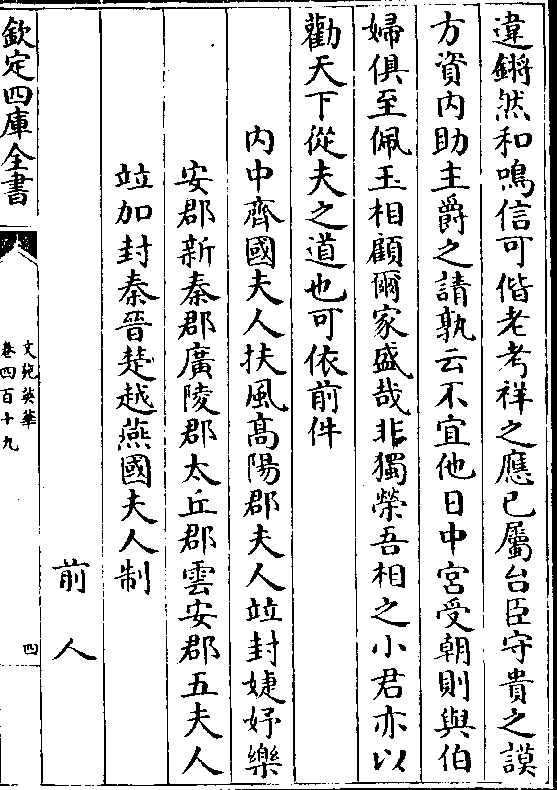 違鏘然和鳴信可偕老考祥之應已屬台臣守貴之謨
方資内助主爵之請孰云不宜他日中宫受朝則與伯
婦俱至佩玉相顧爾家盛哉非獨榮吾相之小君亦以
勸天下從夫之道也可依前件
内中齊國夫人扶風髙陽郡夫人竝封婕妤樂
安郡新秦郡廣陵郡太丘郡雲安郡五夫人
竝加封秦晉楚越燕國夫人制
前人
欽定四庫全書
文苑英華
卷四百十九
四